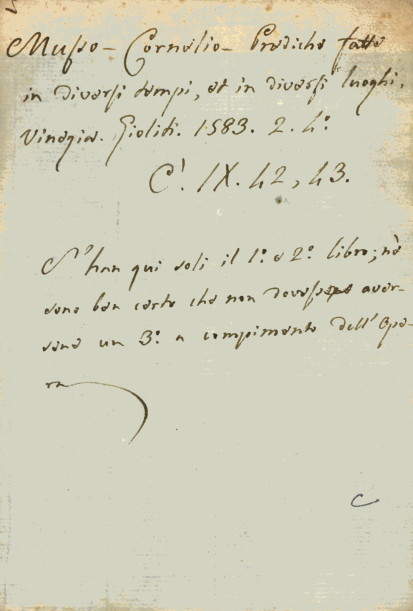 Musso - Cornelio - Prediche fatte
in diversi tempi, et in diversi luoghi.
Vinegia. Gioliti. 1583. 2. 4.º
C. IX. 42, 43.
S'han qui soli il 1.º e 2.º libro; nè
sono ben certo che non dovesse aver-
sene un 3.º a compimento dell'Ope-
ra
C